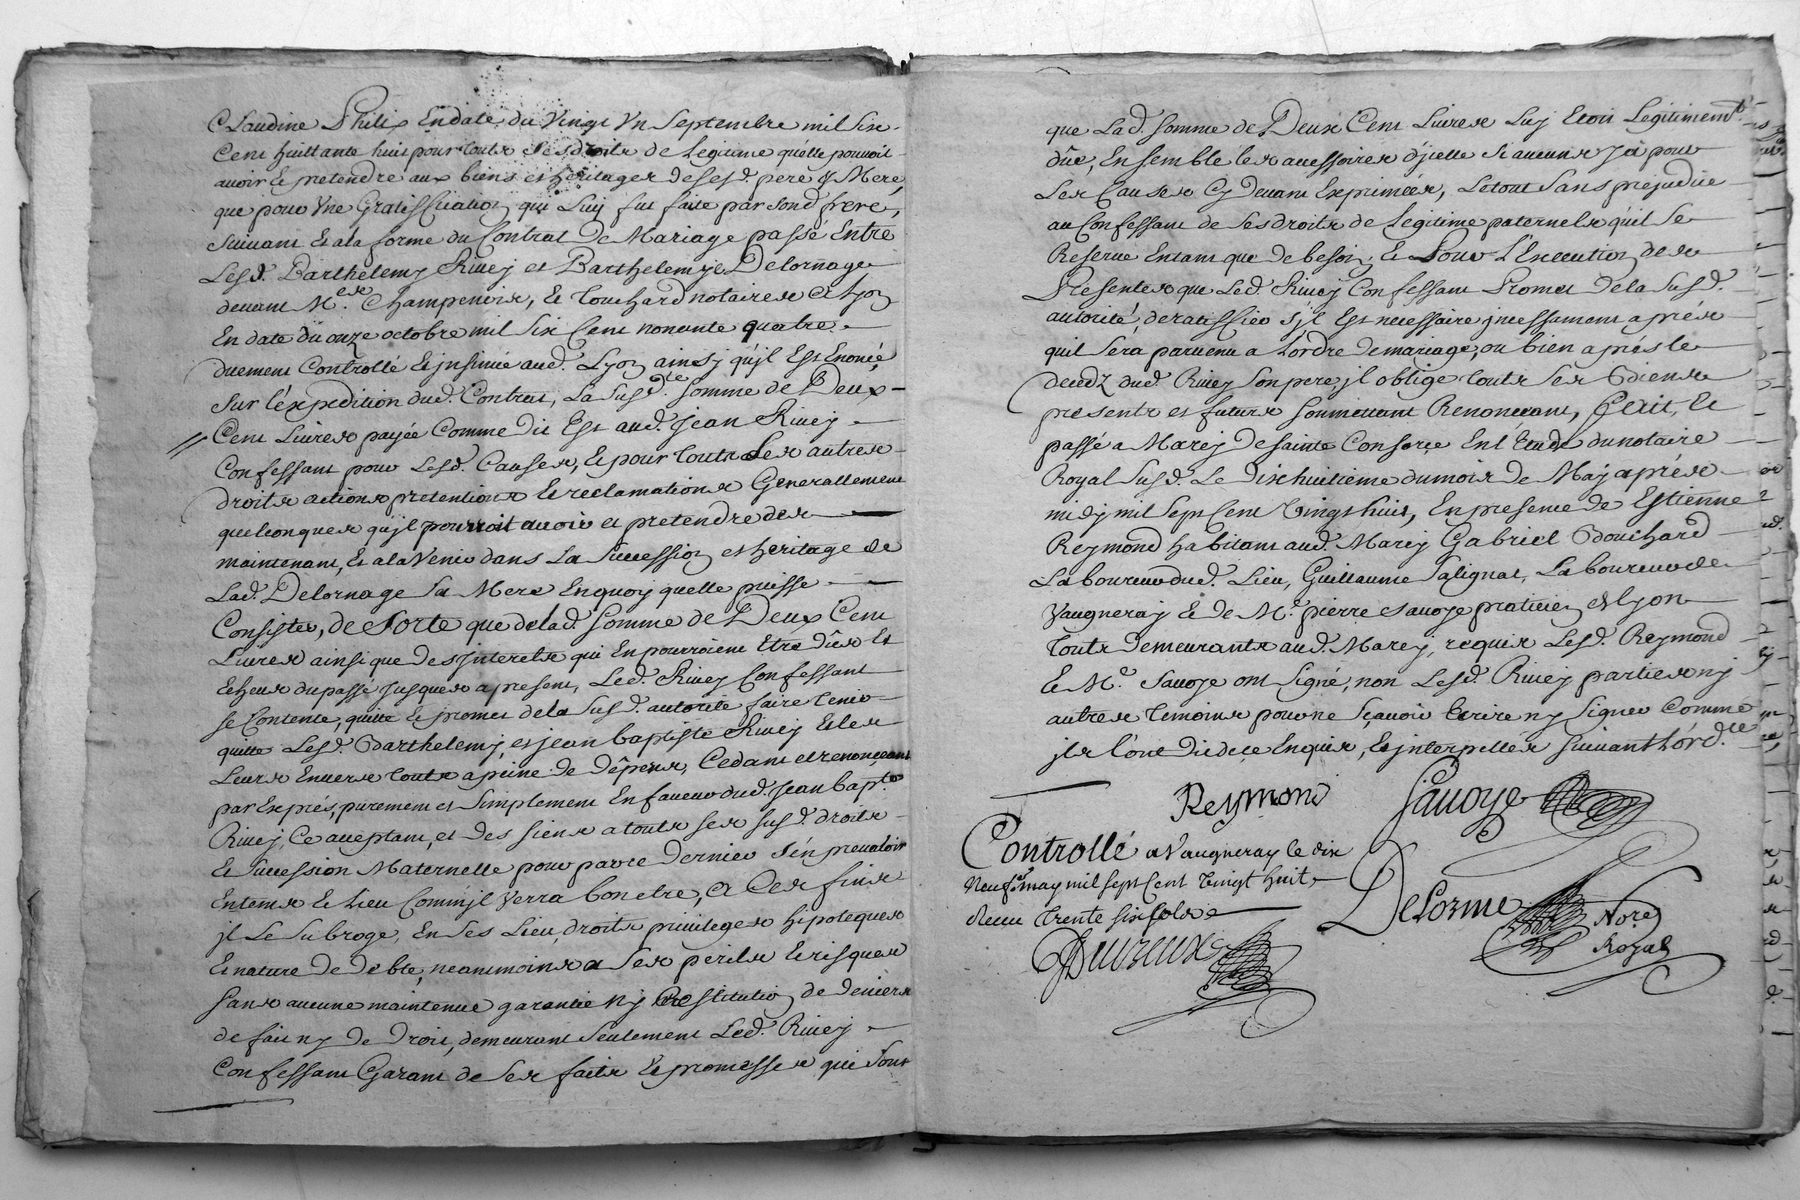 Claudine Philix En date du Vingt Un Septembre mil Six
Cent huittante huit pour touts Ses droits de Legitime quelle pouvoit
avoir & pretendre aux biens et heritages de Sesd. pere & Mere,
que pour Une Gratiffication qui Luy fut faite par Sond frere,
Suivant Et a la forme du Contrat De Mariage passé Entre
Lesd. Barthelemy Rivey et Barthelemye Delornage
devant Mes. Champenois, Et Touchard notaires a Lyon
En date du onze octobre mil Six Cent nonante quatre
Duement Controllé Et insinué aud. Lyon ainsy qu'jl Est Enoncé
Sur l'éxpédition dud. Contrat, La Susdte. Somme de Deux
Cent Livres payée Comme dit Est aud. Jean Rivey
Confessant pour Lesd. Causes, Et pour touts Les autres
droits actions pretentions Et reclamations Generallement
quelconques qu'jl pourroit avoir et pretendre des
maintenant, Et a la Venir dans La Succession et heritage de
Lad. Delornage Sa Mere En quoy quelle puisse
Consister, de Sorte que de lad. Somme de Deux Cent
Livres ainsi que des Interets qui En pourroient Etre dûes Et
Echeus du passé Jusques a present, Led. Rivey Confessant
Se Contente, quitte Et promet de la Susd. autorité faire tenir
quitte Lesd. Barthelemy, et jean baptiste Rivey Et les
Leurs Envers touts a peine de dêpens, Cedant et renonçant
par Exprés, purement et Simplement En faveur dud. Jean bapte.
Rivey, Ce aceptant, et des Siens a touts Ses Susd. droits
Et Succession Maternelle pour par ce Dernier S'en prevaloir
En tems Et Lieu Comm'jl Verra bon etre, a Ces fins
jl Le Subroge, En Ses Lieu, droits privileges hipoteques
Et nature de debte, neanmoins a Ses perils Et risques
Sans aucune maintenue garantie ny Restitution de deniers
de fait ny de Droit, demeurant Seulement Led. Rivey
Confessant Garant de Ses faits & promesses qui Sont
que Lad. Somme de Deux Cent Livres Luy Etoit Legitimemt.
dûe, En Semble les accessoires d'jcelle Si aucuns y a pour
Les Causes Cy Devant Exprimées, Le tout Sans prejudice
au Confessant de Ses droits de Legitime paternels qu'il Se
Reserve En tant que de besoin. Et Pour L'Execution des
Presentes que Led. Rivey Confessant Promet de la Susd.
autorité, de ratiffier S'jl Est necessaire jncessament aprés
quil Sera parvenu a l'ordre de mariage, ou bien aprés le
decedz dud. Rivey Son pere, jl oblige touts Ses Biens
presents et futurs Soumettant Renonceant, Fait, Et
passé a Marcy de Sainte Consorce En l'Etude du notaire
Royal Susd. Le Dixhuitieme du mois de May aprés
midy mil Sept Cent Vingt huit, En presence de Estienne
Reymond habitant aud. Marcy Gabriel Bouchard
Laboureur dud. Lieu, Guillaume Salignat, Laboureur de
Vaugneray Et de Me. pierre Savoye praticien a Lyon
touts demeurants aud. Marcy, requis Lesd. Reymond
Et Me. Savoye ont Signé, non Lesd. Rivey parties ny
autres temoins pour ne Sçavoir Ecrire ny Signer Comme
jls l'ont dit de ce Enquis, Et interpellés Suivant l'ord.ce
Reymond Savoye
Controllé a Vaugneray le dix
Neufe. may mil sept Cent Vingt huit
Receu trente Six sols
Delorme Nore.
Royal